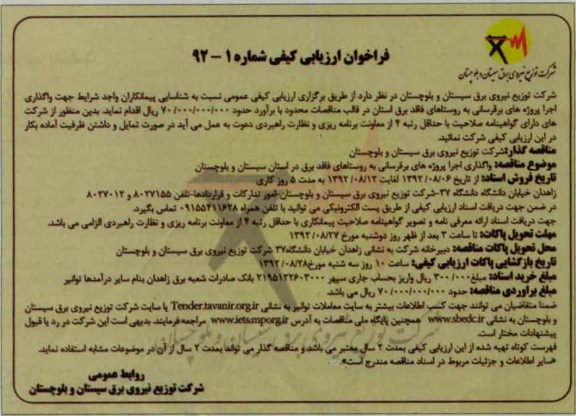 شرکت توزیع نیروی برق سیستان و بلوچستان
فراخوان ارزیابی کیفی شماره ۱ – ۹۲
شرکت توزیع نیروی برق سیستان و بلوچستان در نظر دارد از طریق برگزاری ارزیابی کیفی عمومی نسبت به شناسایی پیمانکاران واجد شرایط جهت واگذاری
اجرا پروژه های برقرسانی به روستاهای فاقد برق استان در قالب مناقصات محدود با برآورد حدود ۷۰/۰۰۰/۰۰۰/۰۰۰ ریال اقدام نماید. بدین منظور از شرکت
های دارای گواهینامه صلاحیت با حداقل رتبه ۴ از معاونت برنامه ریزی و نظارت راهبردی دعوت به عمل می آید در صورت تمایل و داشتن ظرفیت آماده بکار
در این ارزیابی کیفی شرکت نمائید.
مناقصه گذار: شرکت توزیع نیروی برق سیستان و بلوچستان
موضوع مناقصه: واگذاری اجرا پروژه های برقرسانی به روستاهای فاقد برق در استان سیستان و بلوچستان
تاریخ فروش اسناد: از تاریخ ۱۳۹۲/۰۸/۰۶ لغایت ۱۳۹۲/۰۸/۱۲ به مدت ۵ روز کاری
زاهدان خیابان دانشگاه دانشگاه ۳۷-شرکت توزیع نیروی برق سیستان و بلوچستان-امور تدارکات و قراردادها-تلفن ۸۰۳۷۱۵۵ و ۸۰۳۷۰۱۲
در ضمن جهت دریافت اسناد ارزیابی کیفی از طریق پست الکترونیکی می توانید با تلفن همراه ۰۹۱۵۵۴۱۱۶۲۸ تماس بگیرد.
جهت دریافت اسناد ارائه معرفی نامه و تصویر گواهینامه صلاحیت پیمانکاری با حداقل رتبه ۴ از معاونت برنامه ریزی و نظارت راهبردی الزامی می باشد.
مهلت تحویل پاکات: تا ساعت ۳ بعد از ظهر روز دوشنبه مورخ ۱۳۹۲/۰۸/۲۷
محل تحویل پاکات مناقصه: دبیرخانه شرکت به نشانی زاهدان خیابان دانشگاه۳۷ شرکت توزیع نیروی برق سیستان و بلوچستان
تاریخ بازگشایی پاکات ارزیابی کیفی: ساعت ۱۰ روز سه شنبه مورخ۱۳۹۲/۰۸/۲۸
مبلغ خرید اسناد: مبلغ۳۰۰/۰۰۰ ریال واریز بحساب جاری سپهر ۲۱۹۵۱۲۲۶۰۳۰۰۰ بانک صادرات شعبه برق زاهدان بنام سایر درآمدها توانیر
مبلغ برآوردی مناقصه: حدود ۷۰/۰۰۰/۰۰۰/۰۰۰ ریال می باشد.
ضمنا متقاضیان می توانند جهت کسب اطلاعات بیشتر به سایت معاملات توانیر به نشانی Tender.tavanir.org.ir یا سایت شرکت توزیع نیروی برق سیستان
و بلوچستان به نشانی www.sbedc.ir همچنین پایگاه ملی مناقصات به آدرس www.iets.mporg.ir مراجعه فرمایند. بدیهی است این شرکت در رد یا قبول
پیشنهادات مختار است.
فهرست کوتاه تهیه شده از این ارزیابی کیفی بمدت ۲ سال معتبر می باشد و مناقصه گذار می تواند بمدت ۲ سال از آن در موضوعات مشابه استفاده نماید.
«سایر اطلاعات و جزئیات مربوط در اسناد مناقصه مندرج است».
روابط عمومی
شرکت توزیع نیروی برق سیستان و بلوچستان